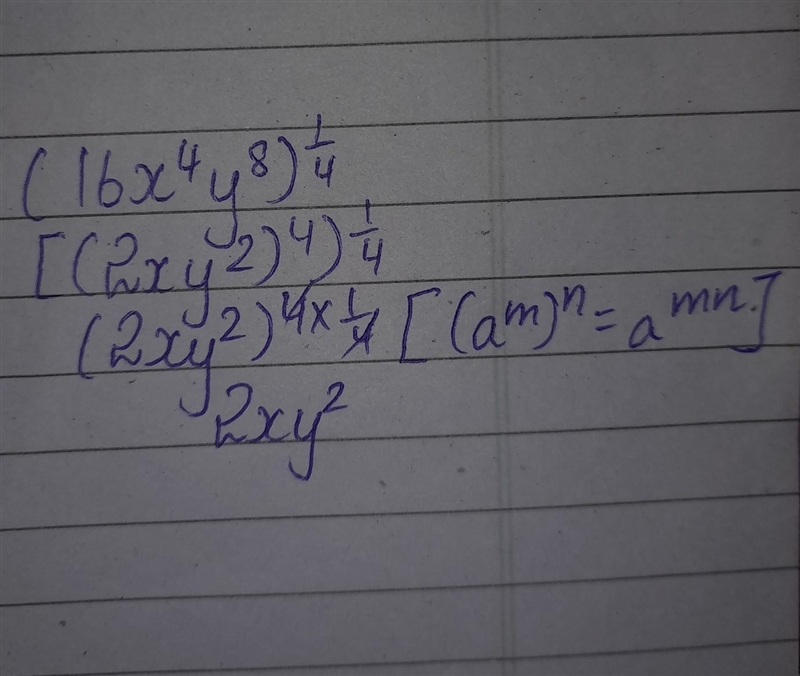 (16x⁴y⁸)^(1/4)
[(2xy²)⁴)^(1/4)
(2xy²)^(4×1/4) [(a^m)^n = a^(mn).]
2xy²